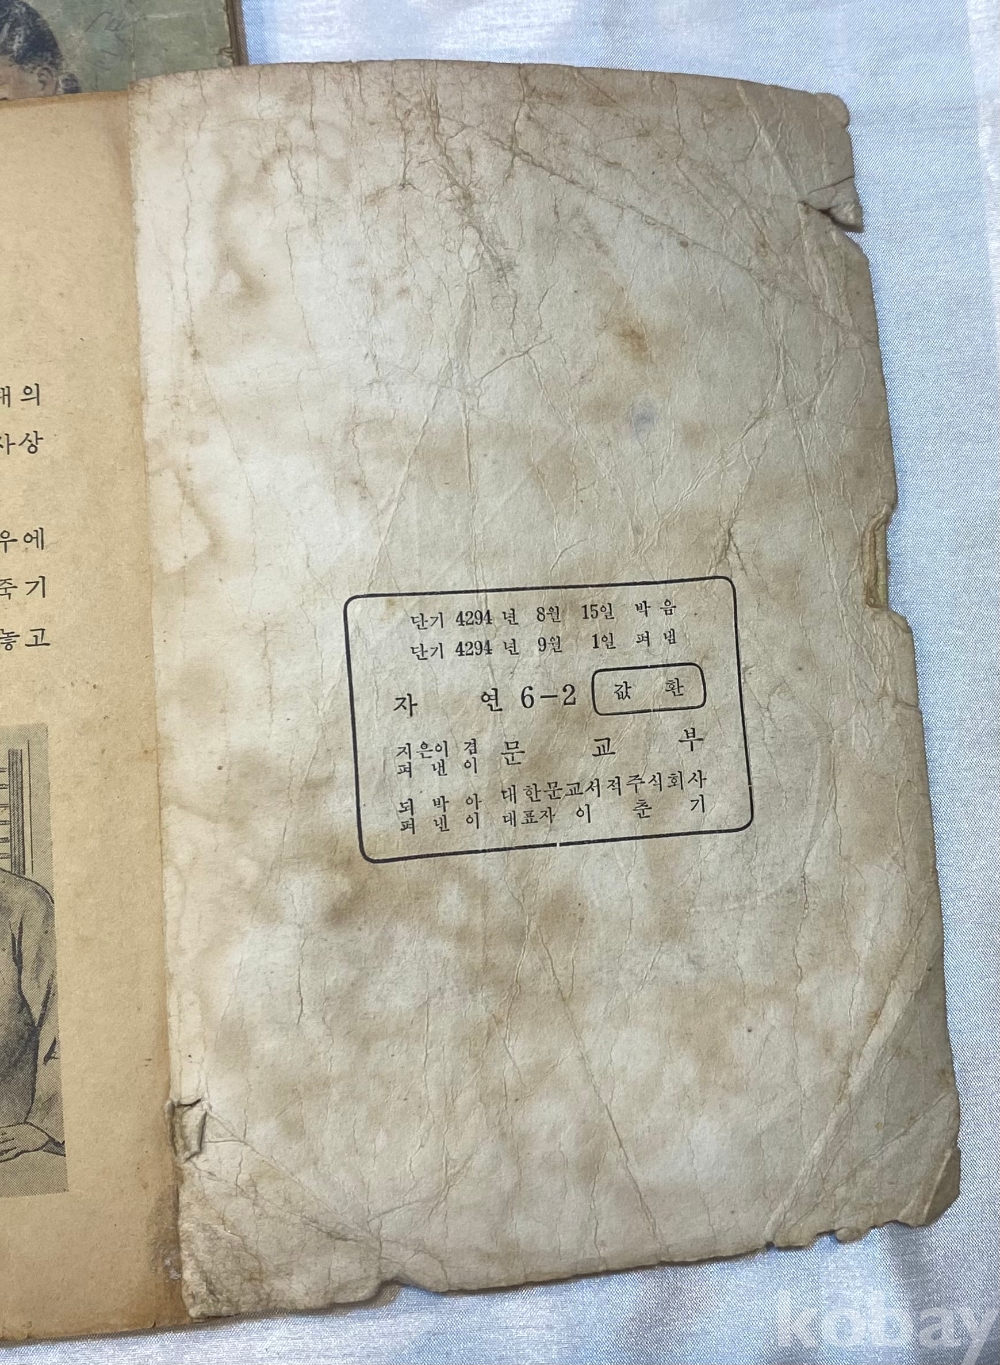 의
사상
우에
죽기
놓고
단기 4294 년 8월 15일 박음
단기 4294 년 9월 1일 펴냄
자 연 6-2 값 환
지은이 겸
펴 낸 이
문 교 부
되 박 아
펴 낸 이
대한문교서적주식회사
대표자 이 춘 기
kobay